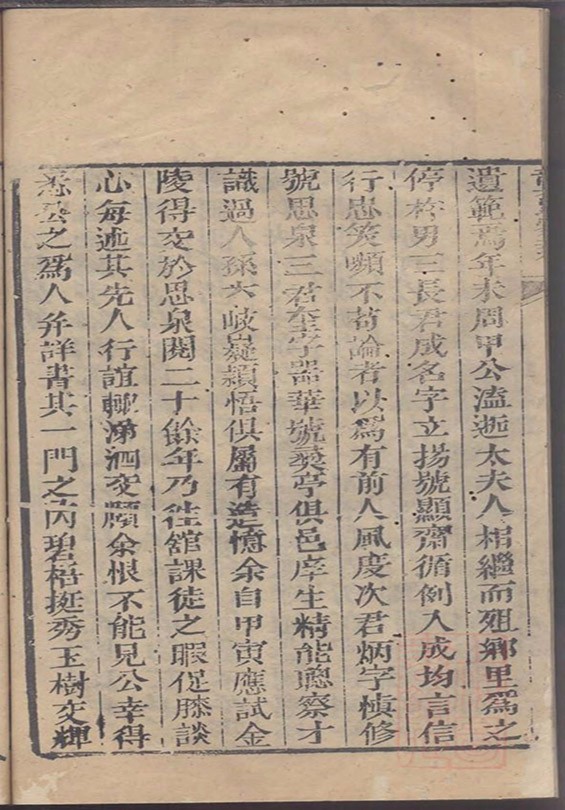 遺範焉年未周甲公溘逝太夫人相繼而殂鄉里爲之
停杵男三長君成名字立揚號顯齋循例入成均言信
行忠笑嚬不苟論者以爲有前人風度次君炳字楨修
號思泉三君奎字器華號奬亭俱邑庠生精能聰察才
識過人孫六岐嶷穎悟俱屬有造憶余自甲寅應試金
陵得交於思泉閱二十餘年乃徃舘課徒之暇促膝談
心每述其先人行誼輙涕泗交頤余恨不能見公幸得
悉公之爲人并詳書其一門之內碧梧挺秀玉樹交輝